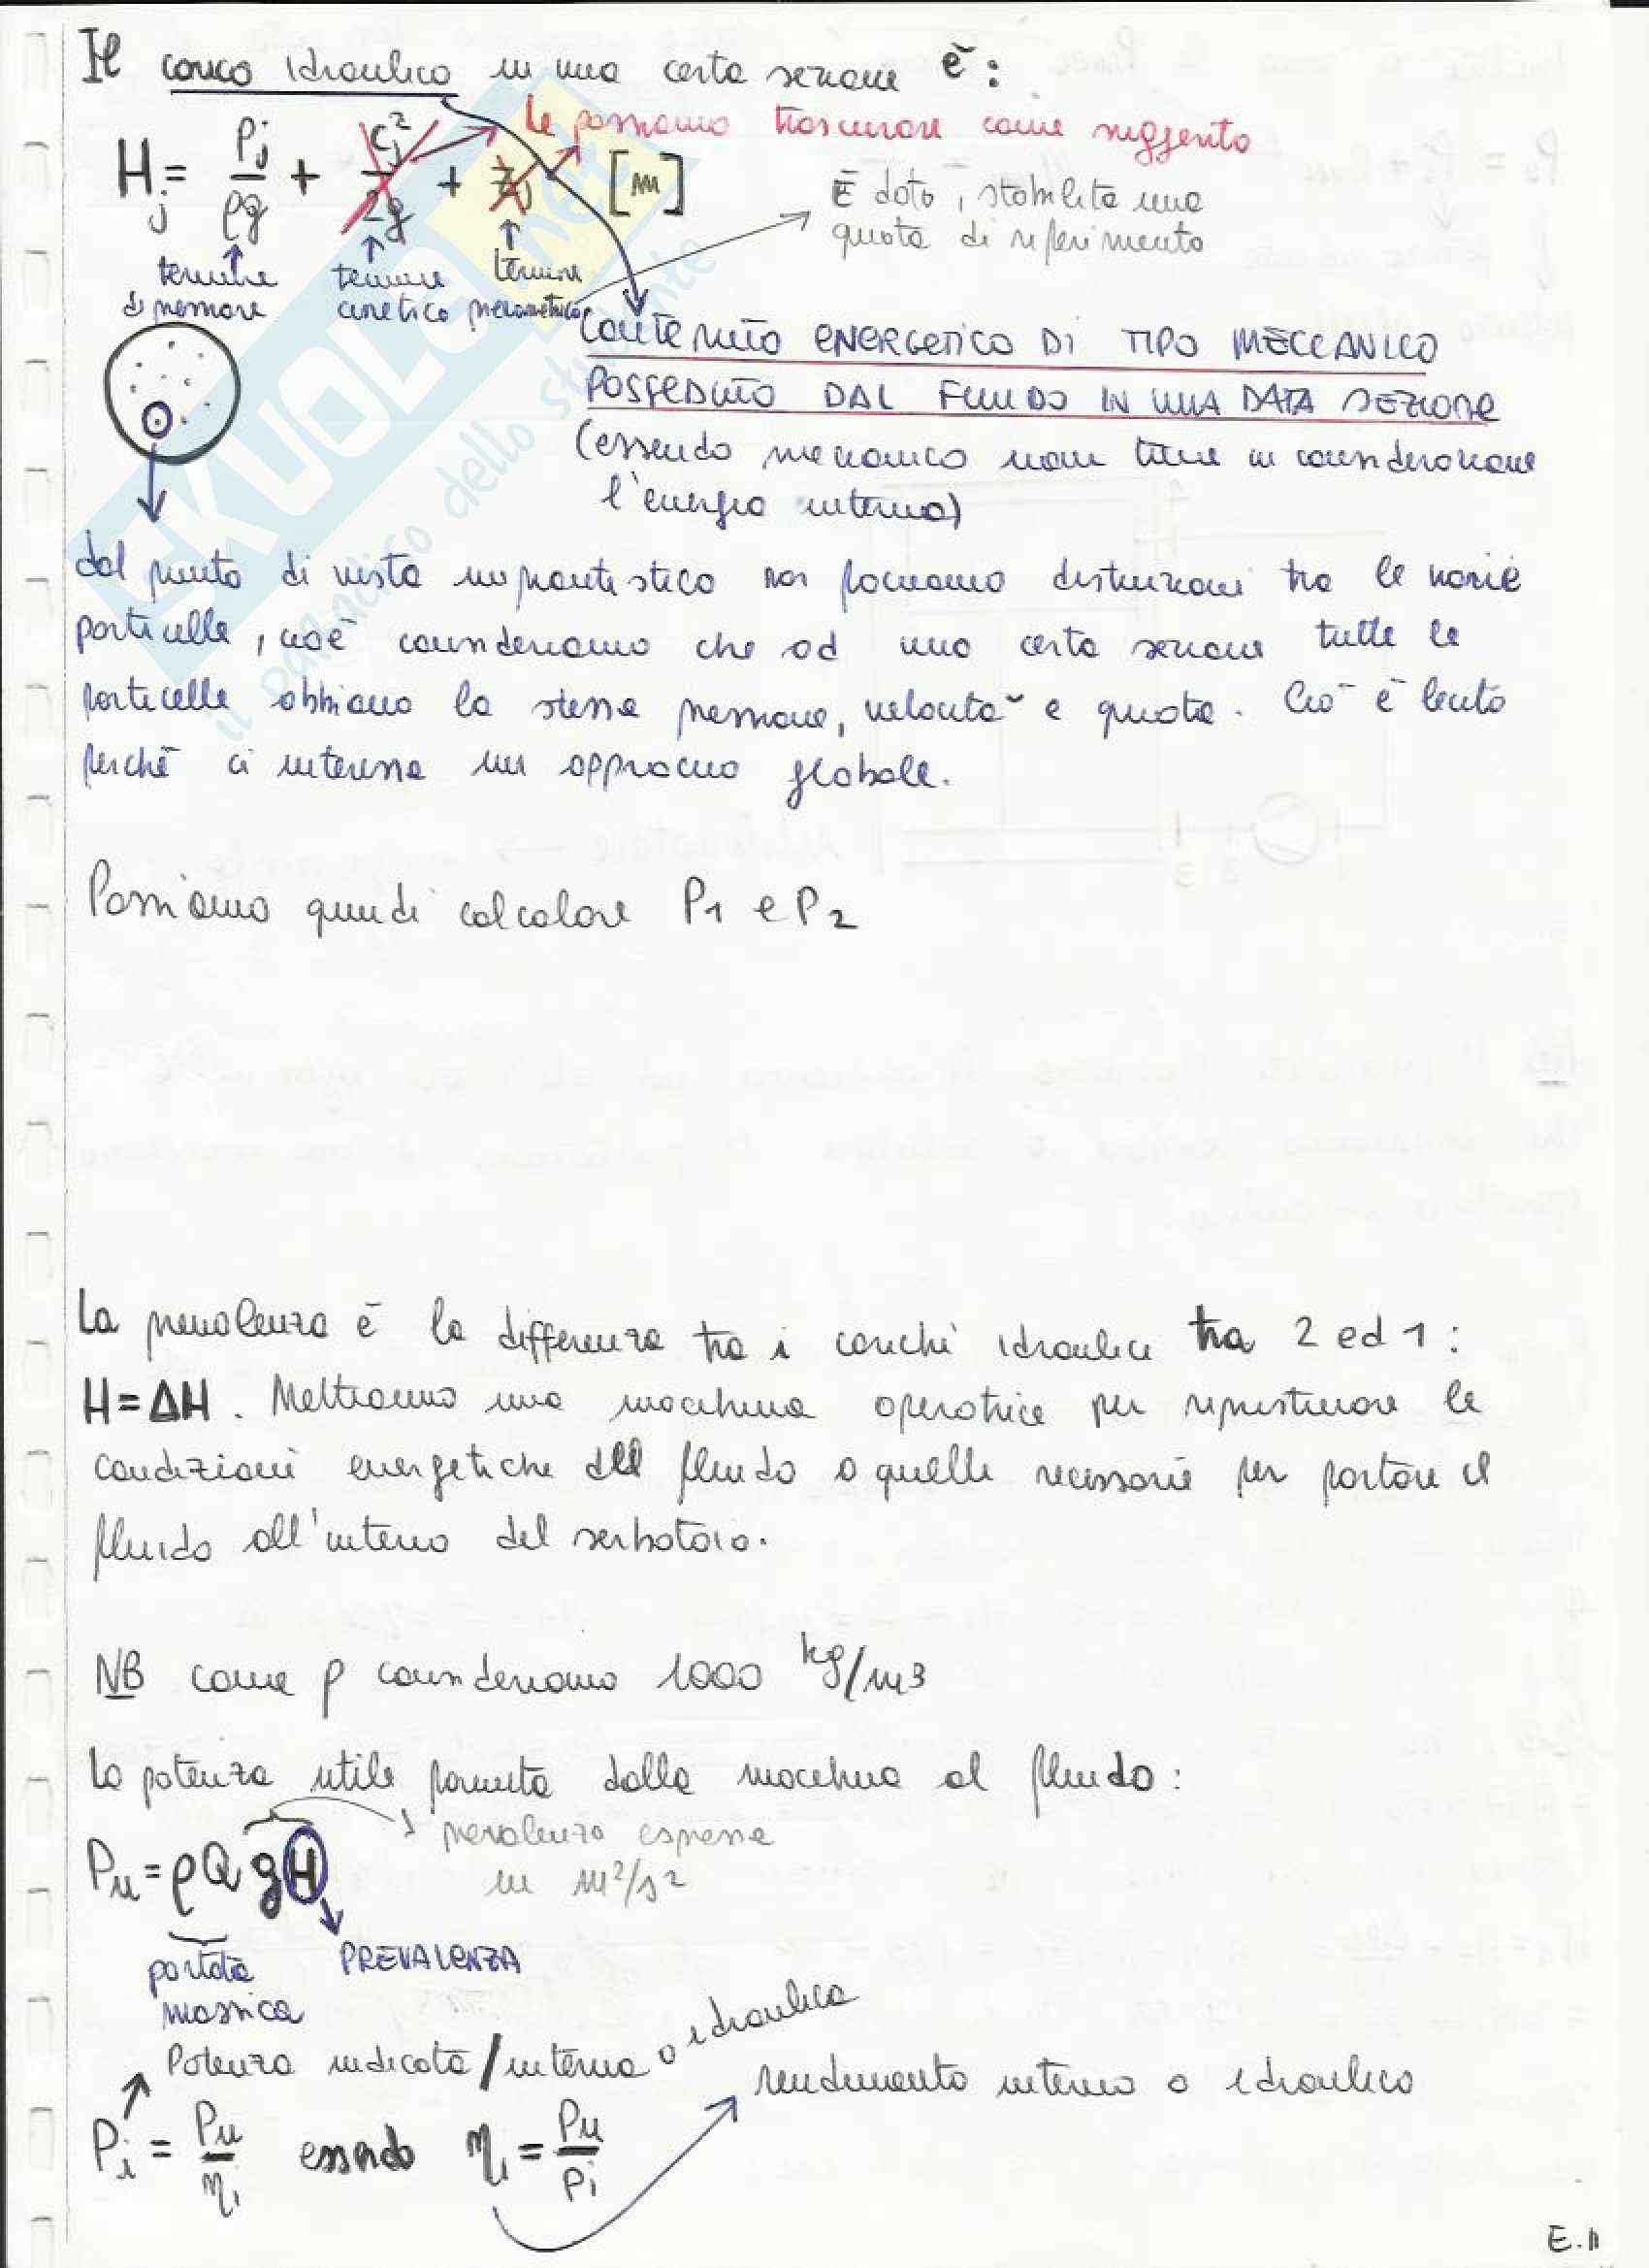 Il carico idraulico in una certa sezione è:
Le possiamo trascurare come suggerito
H_j = p_j/ρg + c_j²/2g + z_j [m]
È dato, stabilita una
quota di riferimento
termine di pressione
termine cinetico
termine piezometrico
CONTENUTO ENERGETICO DI TIPO MECCANICO
POSSEDUTO DAL FLUIDO IN UNA DATA SEZIONE
(essendo meccanico non tiene in considerazione
l'energia interna)
dal punto di vista impiantistico non facciamo distinzioni tra le varie
particelle, cioè consideriamo che ad una certa sezione tutte le
particelle abbiano la stessa pressione, velocità e quota. Ciò è lecito
perchè ci interessa un approccio globale.
Possiamo quindi calcolare P1 e P2
La prevalenza è la differenza tra i carichi idraulici tra 2 ed 1:
H=ΔH. Mettiamo una macchina operatrice per ripristinare le
condizioni energetiche del fluido a quelle necessarie per portare il
fluido all'interno del serbatoio.
NB come ρ consideriamo 1000 kg/m3
La potenza utile fornita dalla macchina al fluido:
prevalenza espressa
in m²/s²
Pu = ρQgH
portata
massica
PREVALENZA
Potenza indicata/interna o idraulica
rendimento interno o idraulico
Pi = Pu/ηi essendo ηi = Pu/Pi
E.11
SKUOLA.net
il paradiso dello studente